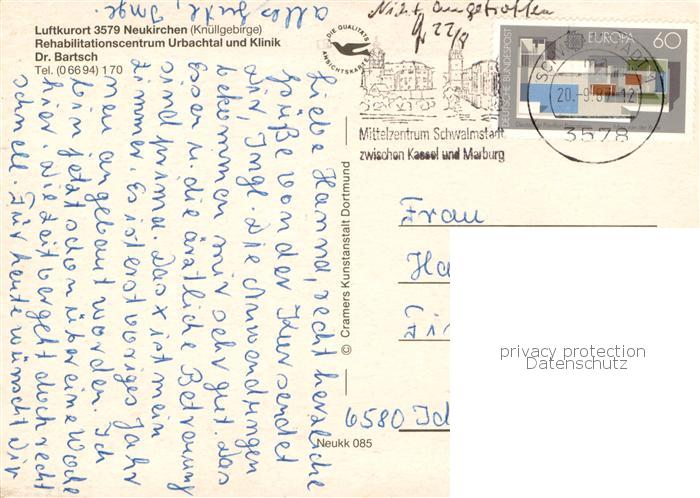 Luftkurort 3579 Neukirchen (Knüllgebirge)
Rehabilitationscentrum Urbachtal und Klinik
Dr. Bartsch
Tel. (0 66 94) 1 70
DIE QUALITÄTS
ANSICHTSKARTE
Nicht angetroffen
22/9
DEUTSCHE BUNDESPOST
EUROPA 60
20.-9.87-12
3578
Mittelzentrum Schwalmstadt
zwischen Kassel und Marburg
Liebe Hanna, recht herzliche
Grüße von der Kur sendet
Dir, Inge. Die Anwendungen
bekommen mir sehr gut. Das
Essen u. die ärztliche Betreuung
sind prima. Das x ist mein
Zimmer. Es ist erst voriges Jahr
neu angebaut worden. Ich
bin jetzt schon über eine Woche
hier. Die Zeit vergeht doch recht
schnell. Für heute wünscht Dir
alles Gute, Inge.
© Cramers Kunstanstalt Dortmund
Neukk 085
Frau
Ha
6580 Id
privacy protection
Datenschutz